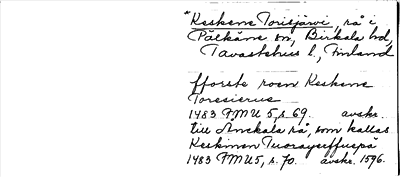 *Keskene Torisjärvi, rå i
Pälkäne sn, Birkala hd,
Tavastehus l., Finland
fforste roen Keskene
Toresierue
1483 FMU 5, s. 69. avskr.
till Anskala rå, som kallas
Keskinen Tuorayerffuepä
1483 FMU 5, s. 70. avskr. 1596.